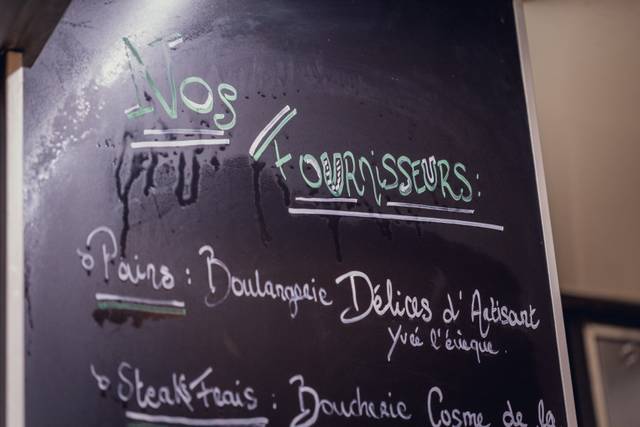 Nos
FOURNISSEURS:
Pains : Boulangerie Délices d'Artisant
Yvré l'évèque.
Steak Frais : Boucherie Cosme de la